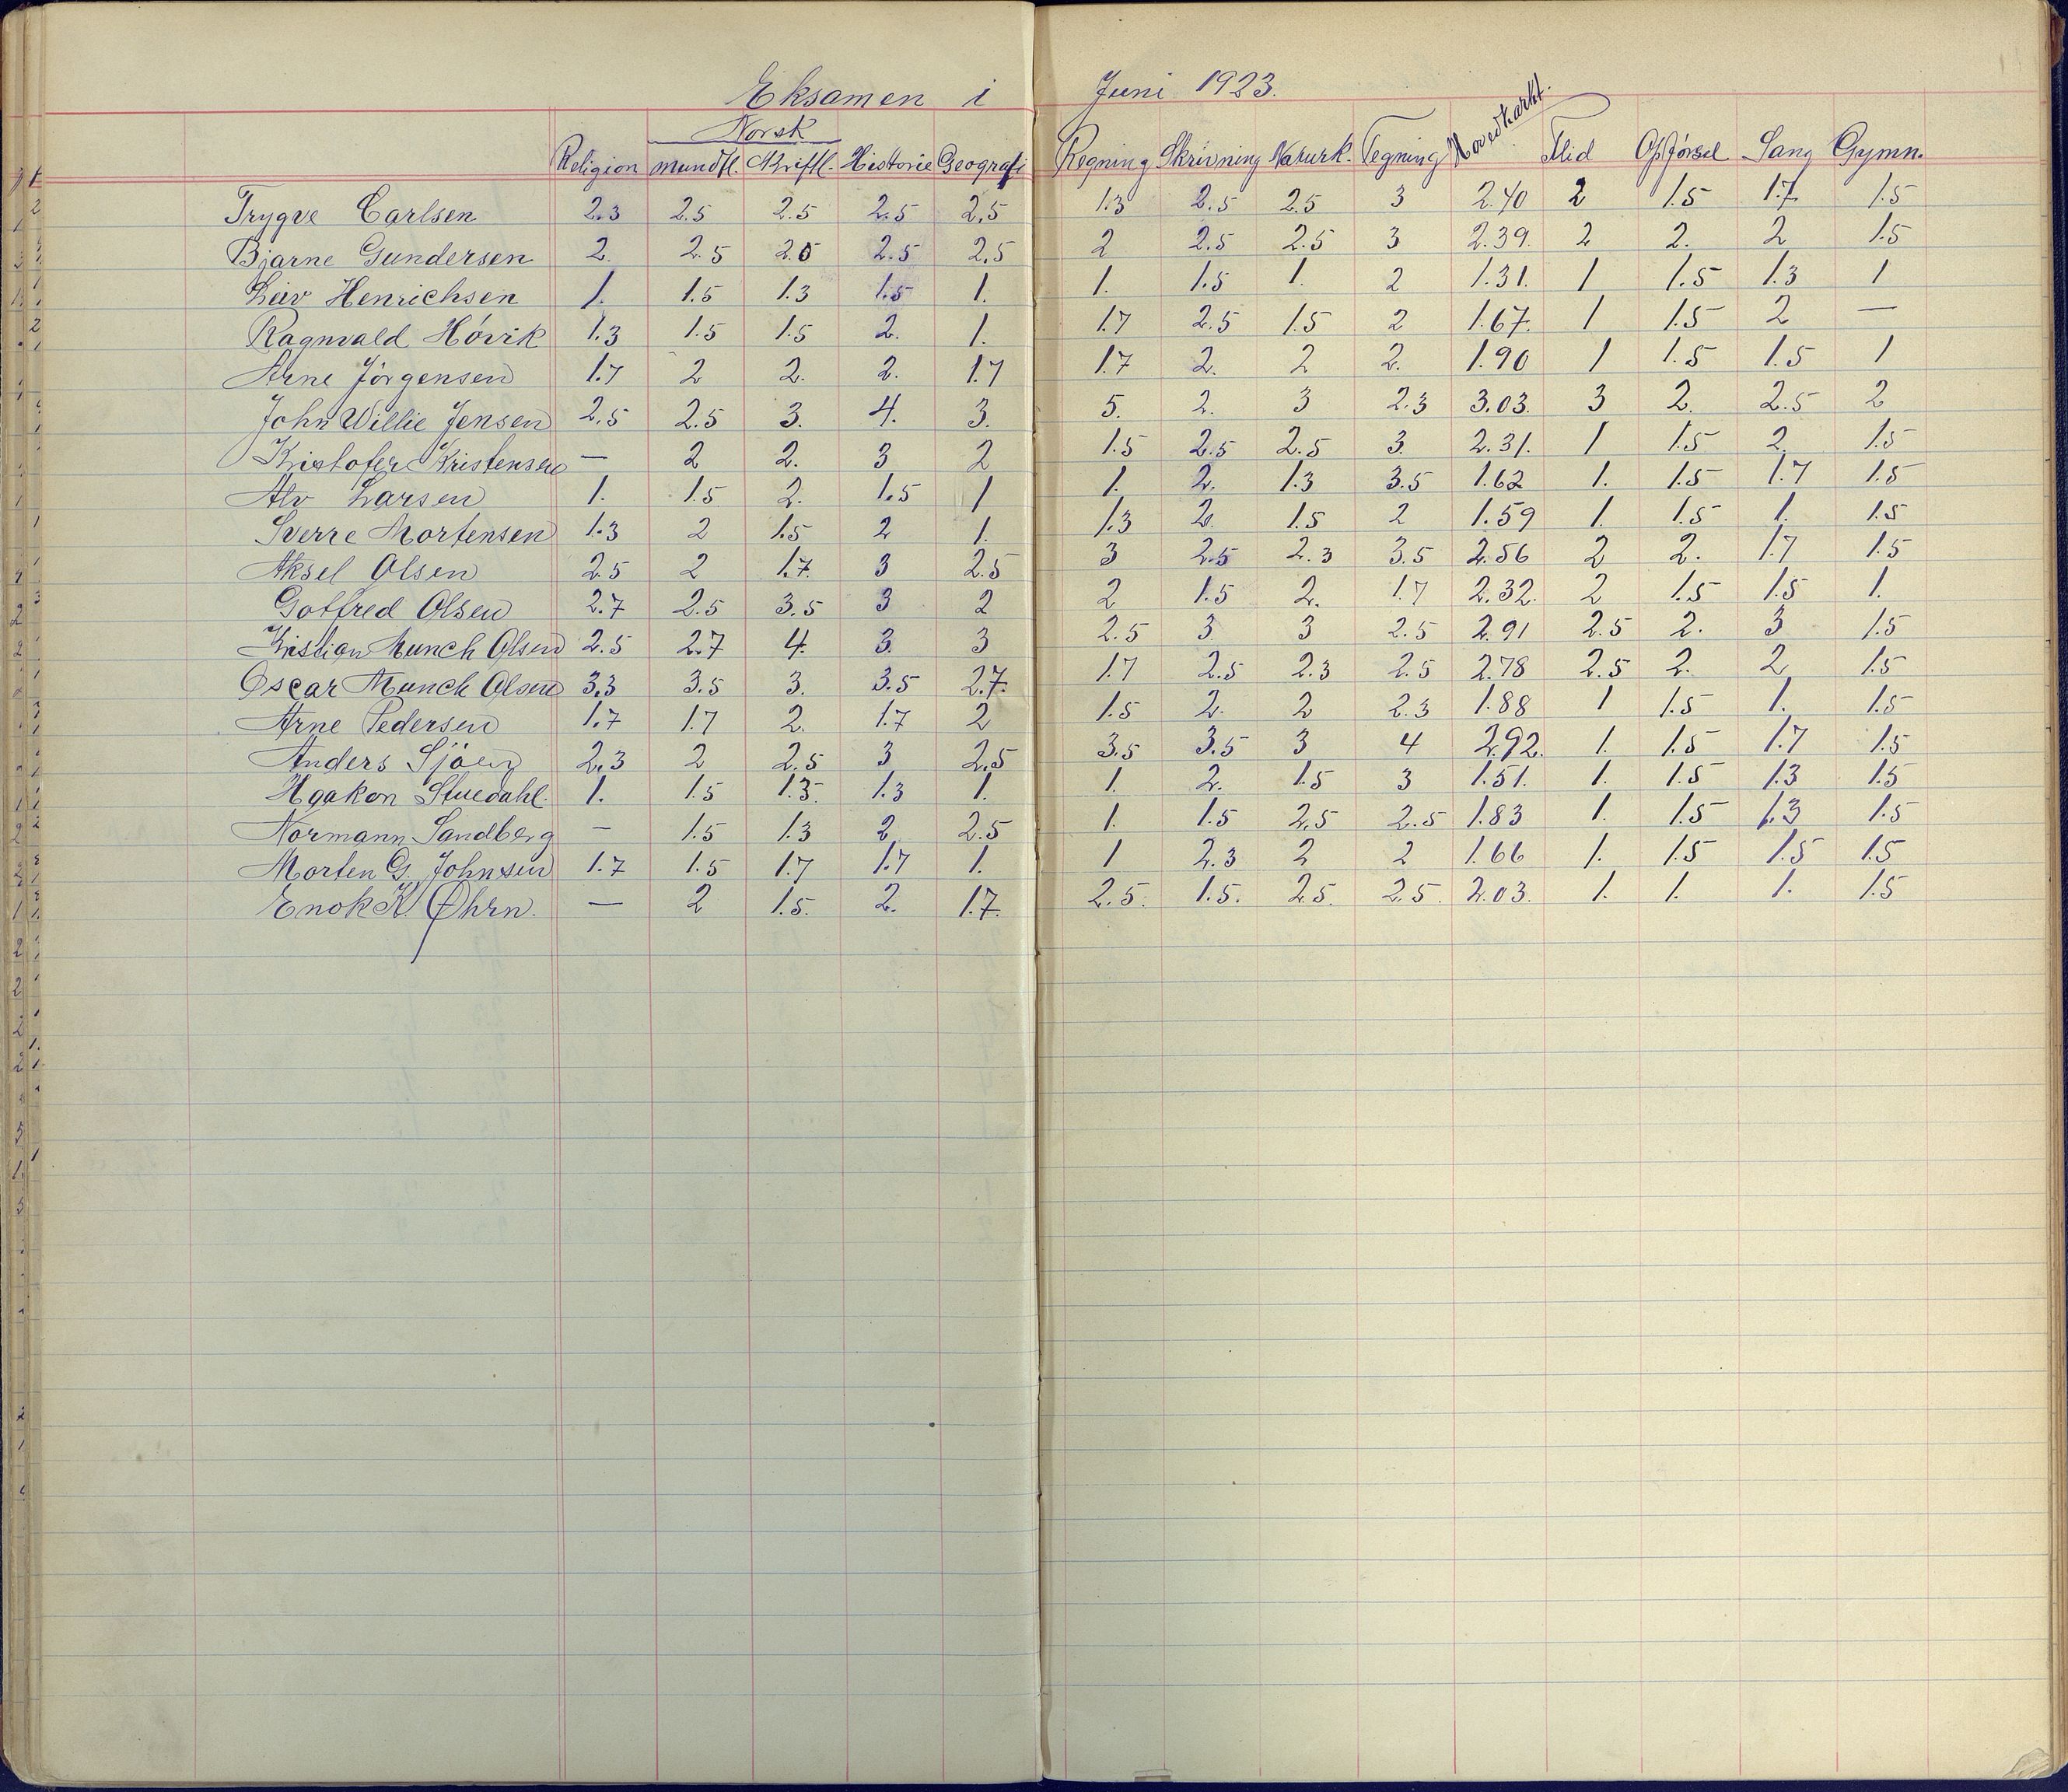 Eksamen i Juni 1923.
Norsk
Religion mundtl. Skriftl. Historie Geografi Regning Skrivning Naturk. Tegning Hovedkarkt. Flid Opförsel Sang Gymn.
Trygve Carlsen 2.3 2.5 2.5 2.5 2.5 1.3 2.5 2.5 3 2.40 2 1.5 1.7 1.5
Bjarne Gundersen 2. 2.5 2.5 2.5 2.5 2 2.5 2.5 3 2.39. 2 2. 2 1.5
Leiv Henrichsen 1. 1.5 1.3 1.5 1. 1. 1.5 1. 2 1.31. 1 1.5 1.3 1
Ragnvald Hóvik 1.3 1.5 1.5 2. 1. 1.7 2.5 1.5 2 1.67. 1 1.5 2 —
Arne Jörgensen 1.7 2 2. 2. 1.7 1.7 2. 2 2. 1.90 1 1.5 1.5 1
John Willie Jensen 2.5 2.5 3. 4. 3. 5. 2. 3 2.3 3.03. 3 2. 2.5 2
Kristofer Kristensen — 2 2. 3 2 1.5 2.5 2.5 3. 2.31. 1 1.5 2. 1.5
Alv Larsen 1. 1.5 2. 1.5 1 1. 2. 1.3 3.5 1.62 1. 1.5 1.7 1.5
Sverre Mortensen 1.3 2 1.5 2 1. 1.3 2. 1.5 2 1.59 1. 1.5 1. 1.5
Aksel Olsen 2.5 2 1.7. 3 2.5 3 2.5 2.3 3.5 2.56 2 2. 1.7 1.5
Gotfred Olsen 2.7 2.5 3.5 3 2 2 1.5 2. 1.7 2.32. 2 1.5 1.5 1.
Kristian Munch Olsen 2.5 2.7 4. 3. 3 2.5 3. 3 2.5 2.91 2.5 2. 3 1.5
Oscar Munch Olsen 3.3 3.5 3. 3.5 2.7. 1.7 2.5 2.3 2.5 2.78 2.5 2. 2 1.5
Arne Pedersen 1.7 1.7 2. 1.7 2 1.5 2. 2 2.3 1.88 1 1.5 1. 1.5
Anders Sjöen 2.3 2 2.5 3 2.5 3.5 3.5 3 4 2.92. 1. 1.5 1.7 1.5
Haakon Stuedahl. 1. 1.5 1.3. 1.3 1. 1. 2. 1.5 3 1.51. 1. 1.5 1.3 1.5
Normann Sandberg — 1.5 1.3 2. 2.5 1. 1.5 2.5 2.5 1.83 1. 1.5 1.3 1.5
Morten G. Johnsen 1.7 1.5 1.7 1.7 1. 1 2.3 2 2 1.66 1. 1.5 1.5 1.5
Enok K. Øhrn. — 2 1.5. 2. 1.7. 2.5. 1.5. 2.5. 2.5. 2.03. 1. 1. 1. 1.5